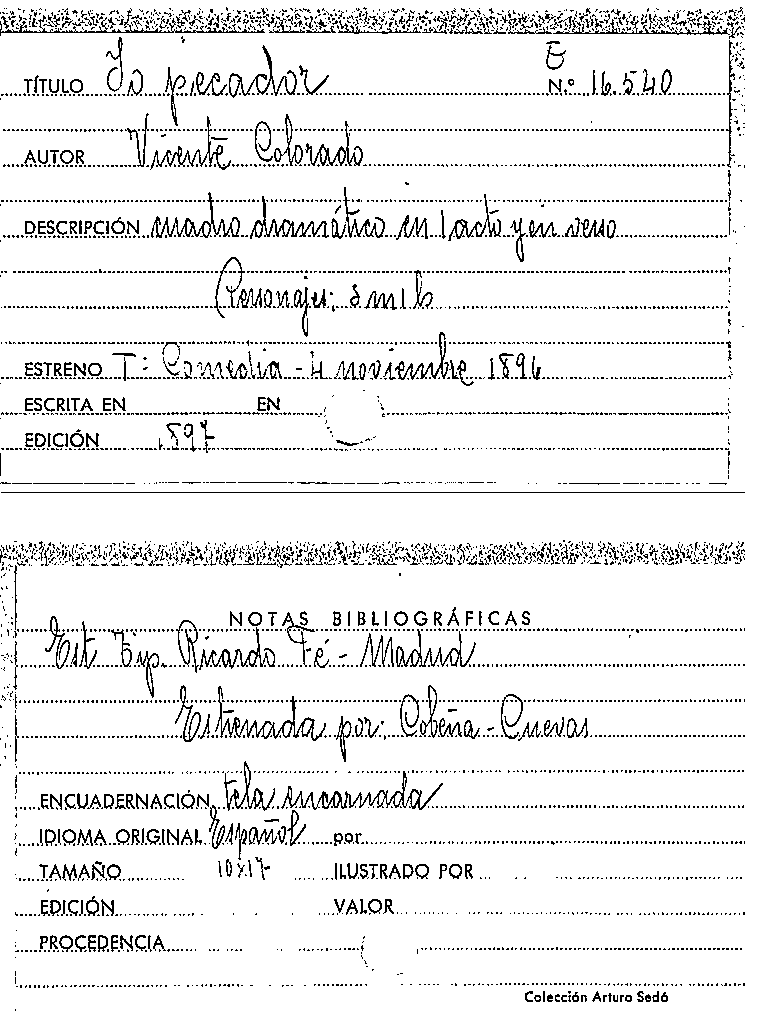 E
TÍTULO Yo pecador N.º 16.540
AUTOR Vicente Colorado
DESCRIPCIÓN cuadro dramático en 1 acto y en verso
Personajes: 3 m 1 h
ESTRENO T: Comedia - 4 noviembre 1896
ESCRITA EN EN
EDICIÓN 1897
NOTAS BIBLIOGRÁFICAS
Est Tip. Ricardo Fé - Madrid
Estrenada por: Cobeña - Cuevas
ENCUADERNACIÓN tela encarnada
IDIOMA ORIGINAL Español por
TAMAÑO 10x17 ILUSTRADO POR
EDICIÓN VALOR
PROCEDENCIA
Colección Arturo Sedó